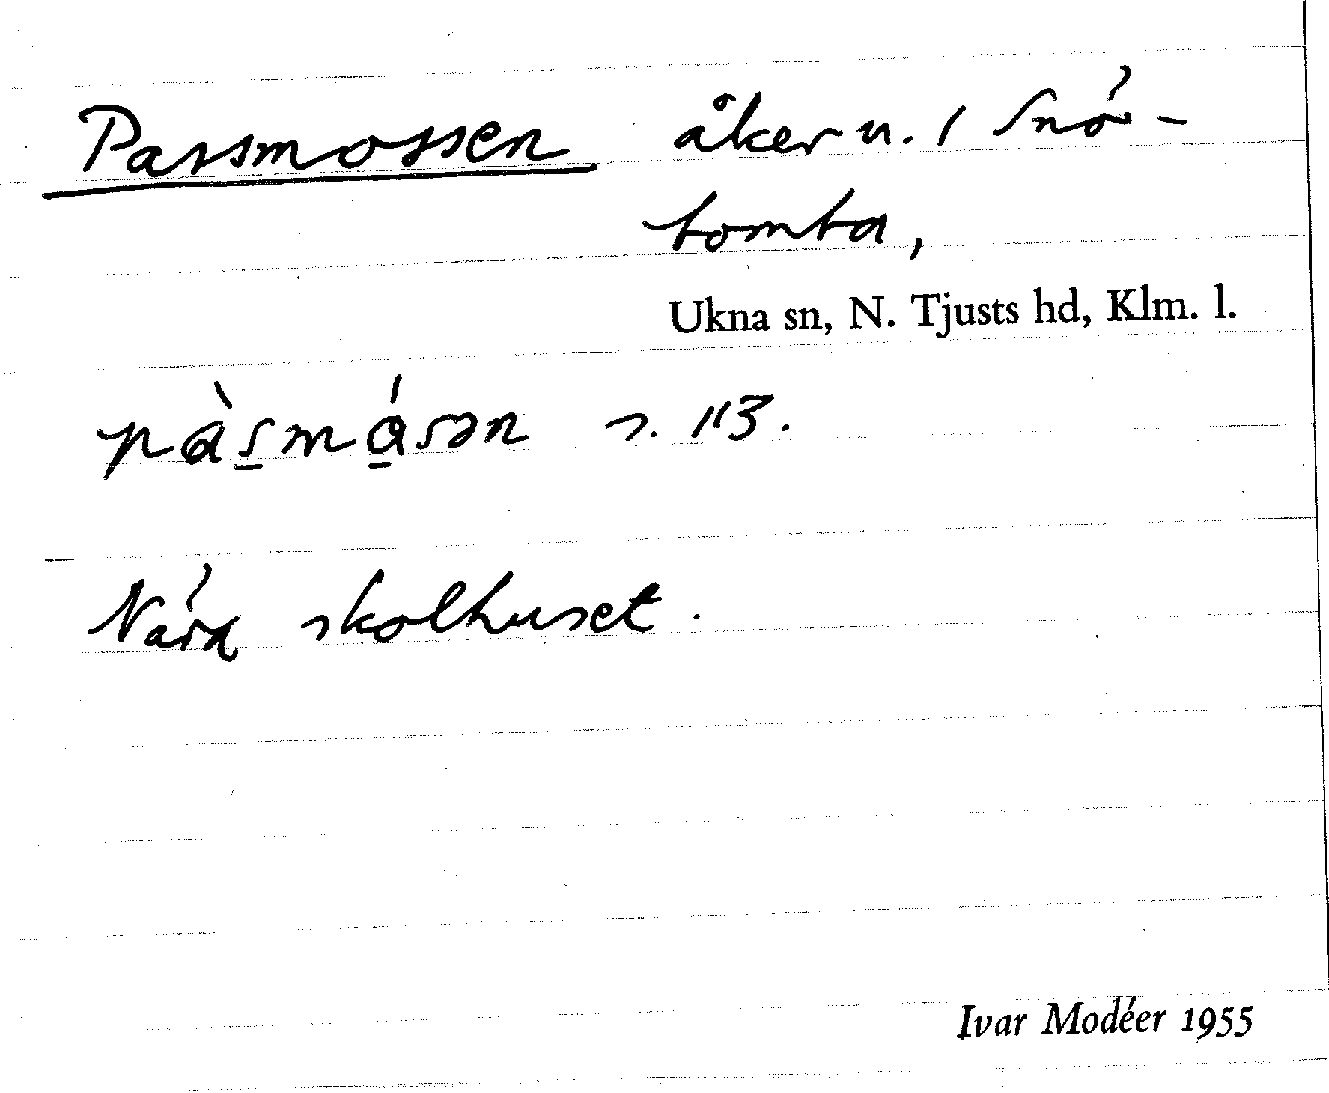 Passmossen åker u. / Snö-
tomta,
Ukna sn, N. Tjusts hd, Klm. l.
pàs̠má̠sən s. 113.
Nära skolhuset.
Ivar Modéer 1955